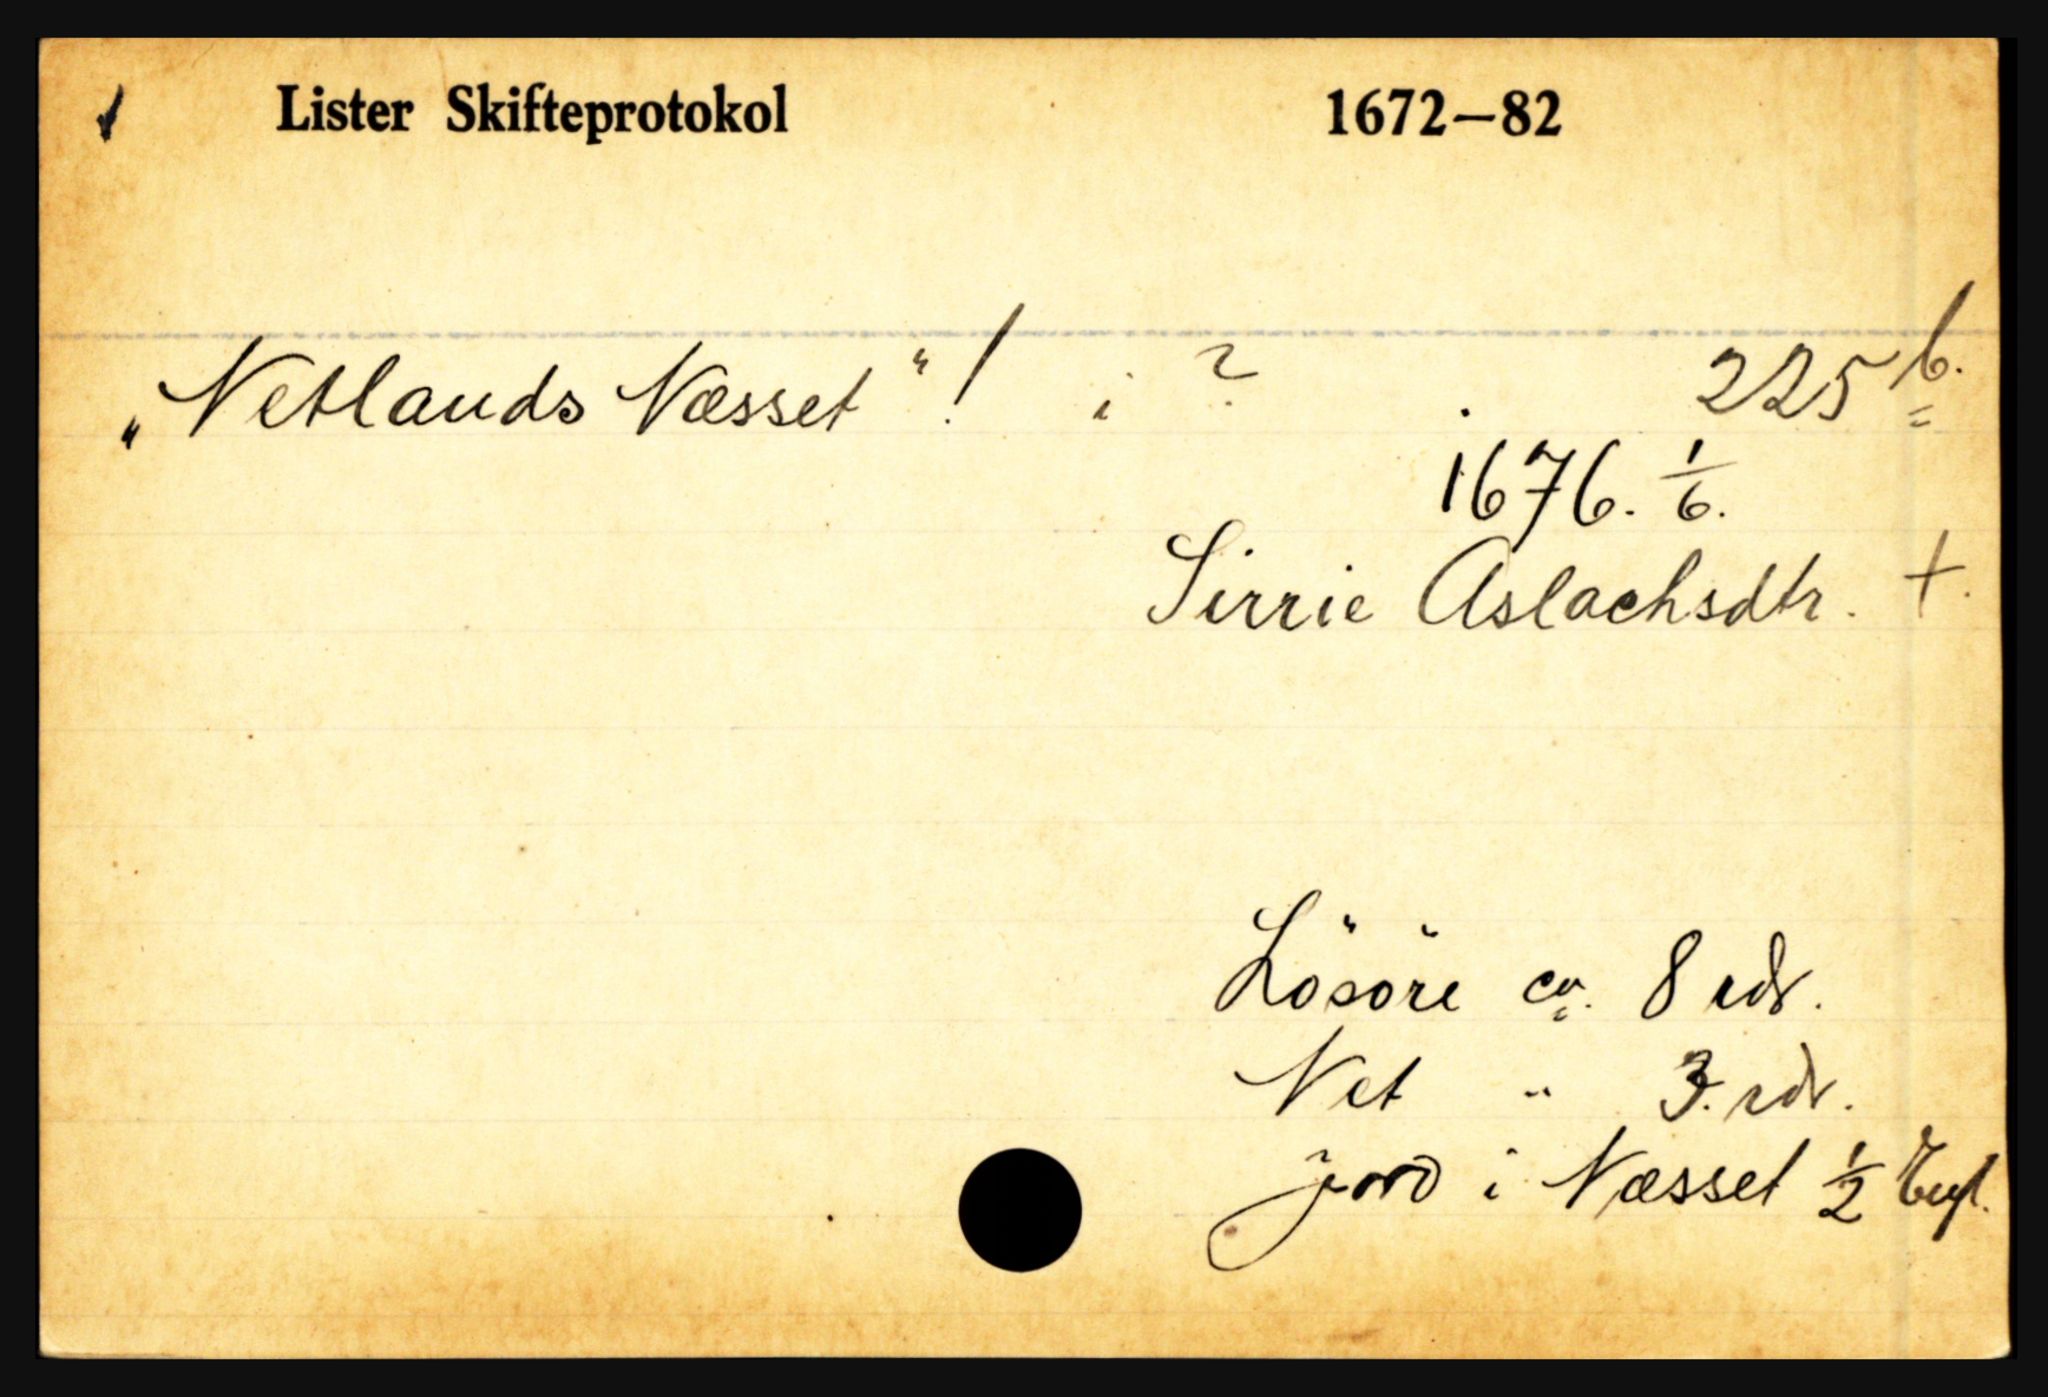 Lister Skifteprotokol 1672—82
„Netlands Næsset“! i ? 225 b.
1676. 1/6.
Sirrie Aslachsdtr. +.
Lösöre ca. 8 rdr.
Net " 3. rdr.
Jord i Næsset 1/2